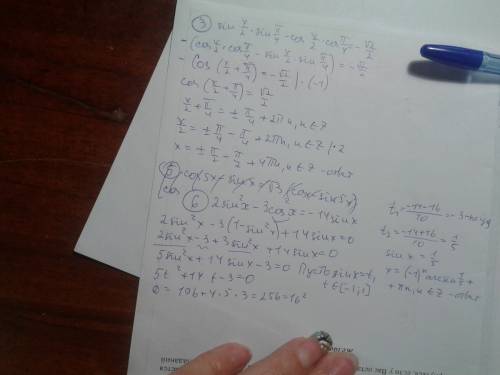 ③ sin x/2 · sin π/4 - cos x/2 · cos π/4 = -√2/2
-(cos x/2 · cos π/4 - sin x/2 · sin π/4) = -√2/2
- cos (x/2 + π/4) = -√2/2 | · (-1)
cos (x/2 + π/4) = √2/2
x/2 + π/4 = ± π/4 + 2πn, n ∈ Z
x/2 = ± π/4 - π/4 + 2πn, n ∈ Z | · 2
x = ± π/2 - π/2 + 4πn, n ∈ Z - ответ
⑥ 2sin²x - 3cos²x = -14sinx
2sin²x - 3(1-sin²x) + 14sinx = 0
2sin²x - 3 + 3sin²x + 14sinx = 0
5sin²x + 14sinx - 3 = 0 Пусть sinx = t,
t ∈ [-1; 1]
5t² + 14t - 3 = 0
D = 196 + 4 · 5 · 3 = 256 = 16²
t₁ = -14-16/10 = -3 -
t₂ = -14+16/10 = 1/5
sin x = 1/5
x = (-1)ⁿ arcsin 1/5 +
+ πn, n ∈ Z - ответ